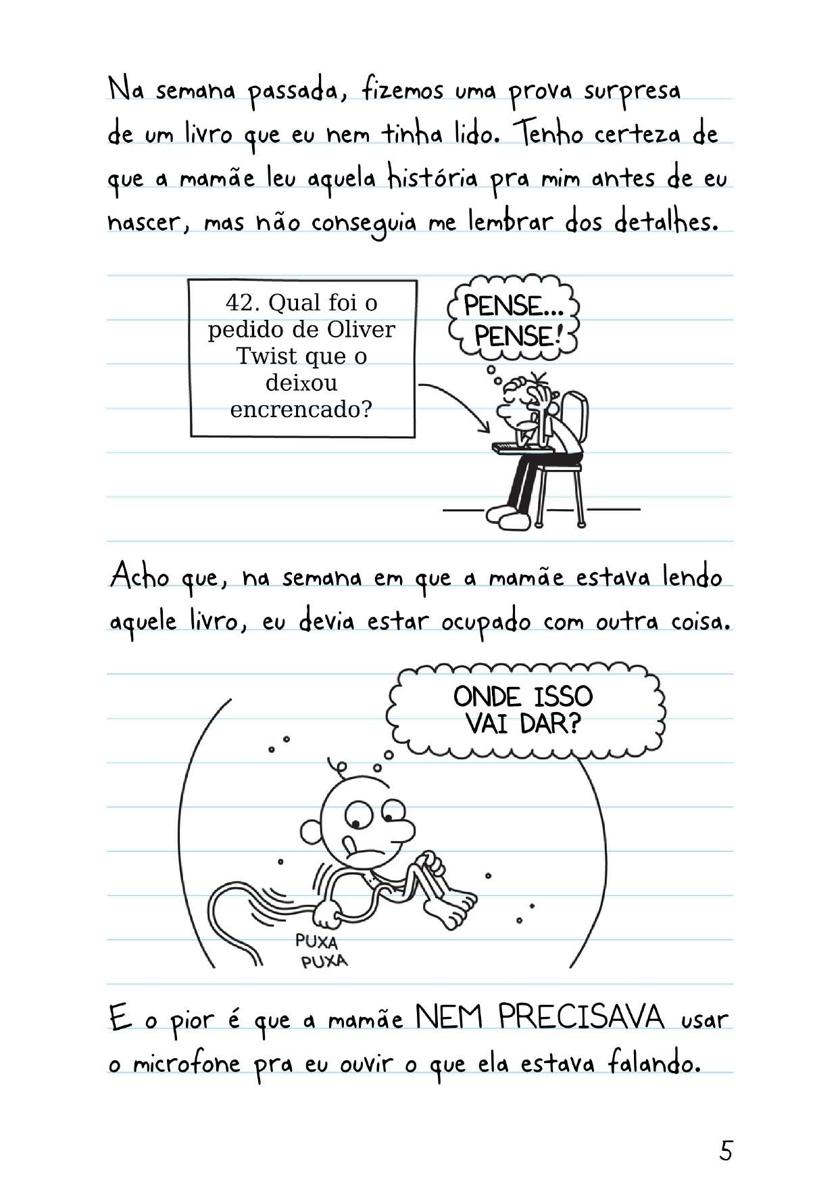 Na semana passada, fizemos uma prova surpresa
de um livro que eu nem tinha lido. Tenho certeza de
que a mamãe leu aquela história pra mim antes de eu
nascer, mas não conseguia me lembrar dos detalhes.
42. Qual foi o
pedido de Oliver
Twist que o
deixou
encrencado?
PENSE...
PENSE!
Acho que, na semana em que a mamãe estava lendo
aquele livro, eu devia estar ocupado com outra coisa.
ONDE ISSO
VAI DAR?
PUXA
PUXA
E o pior é que a mamãe NEM PRECISAVA usar
o microfone pra eu ouvir o que ela estava falando.
5